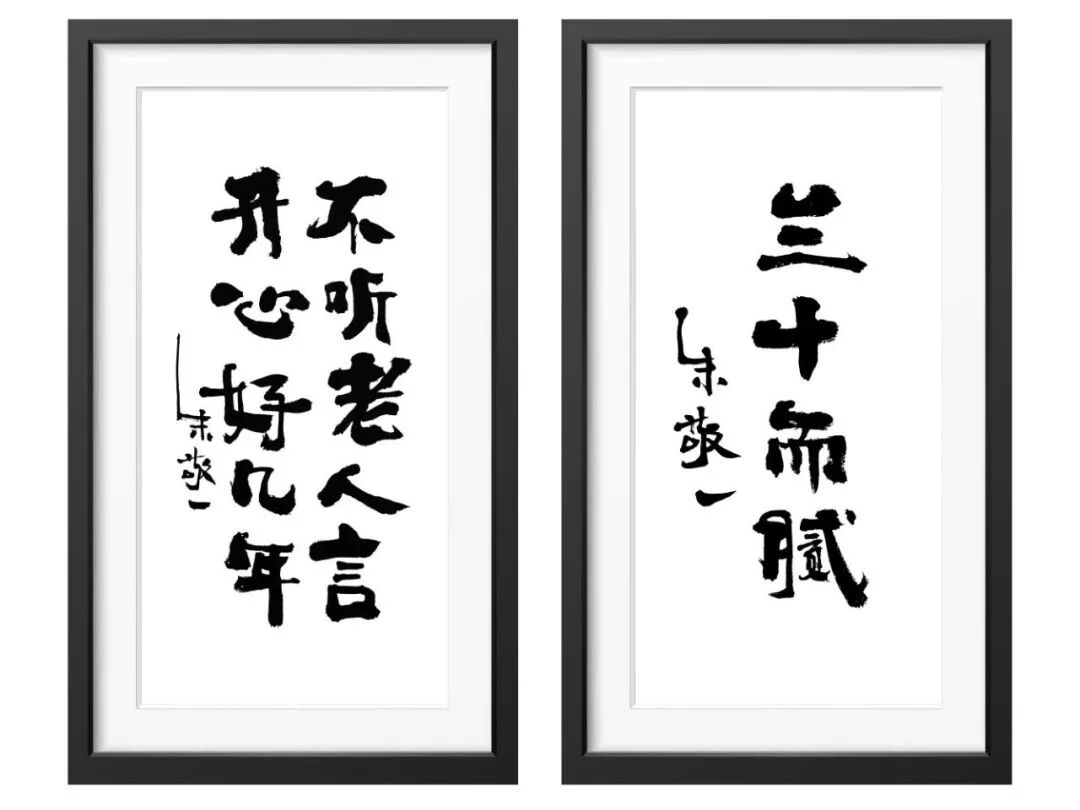 不听老人言
开心好几年
朱敬一
三十而腻
朱敬一